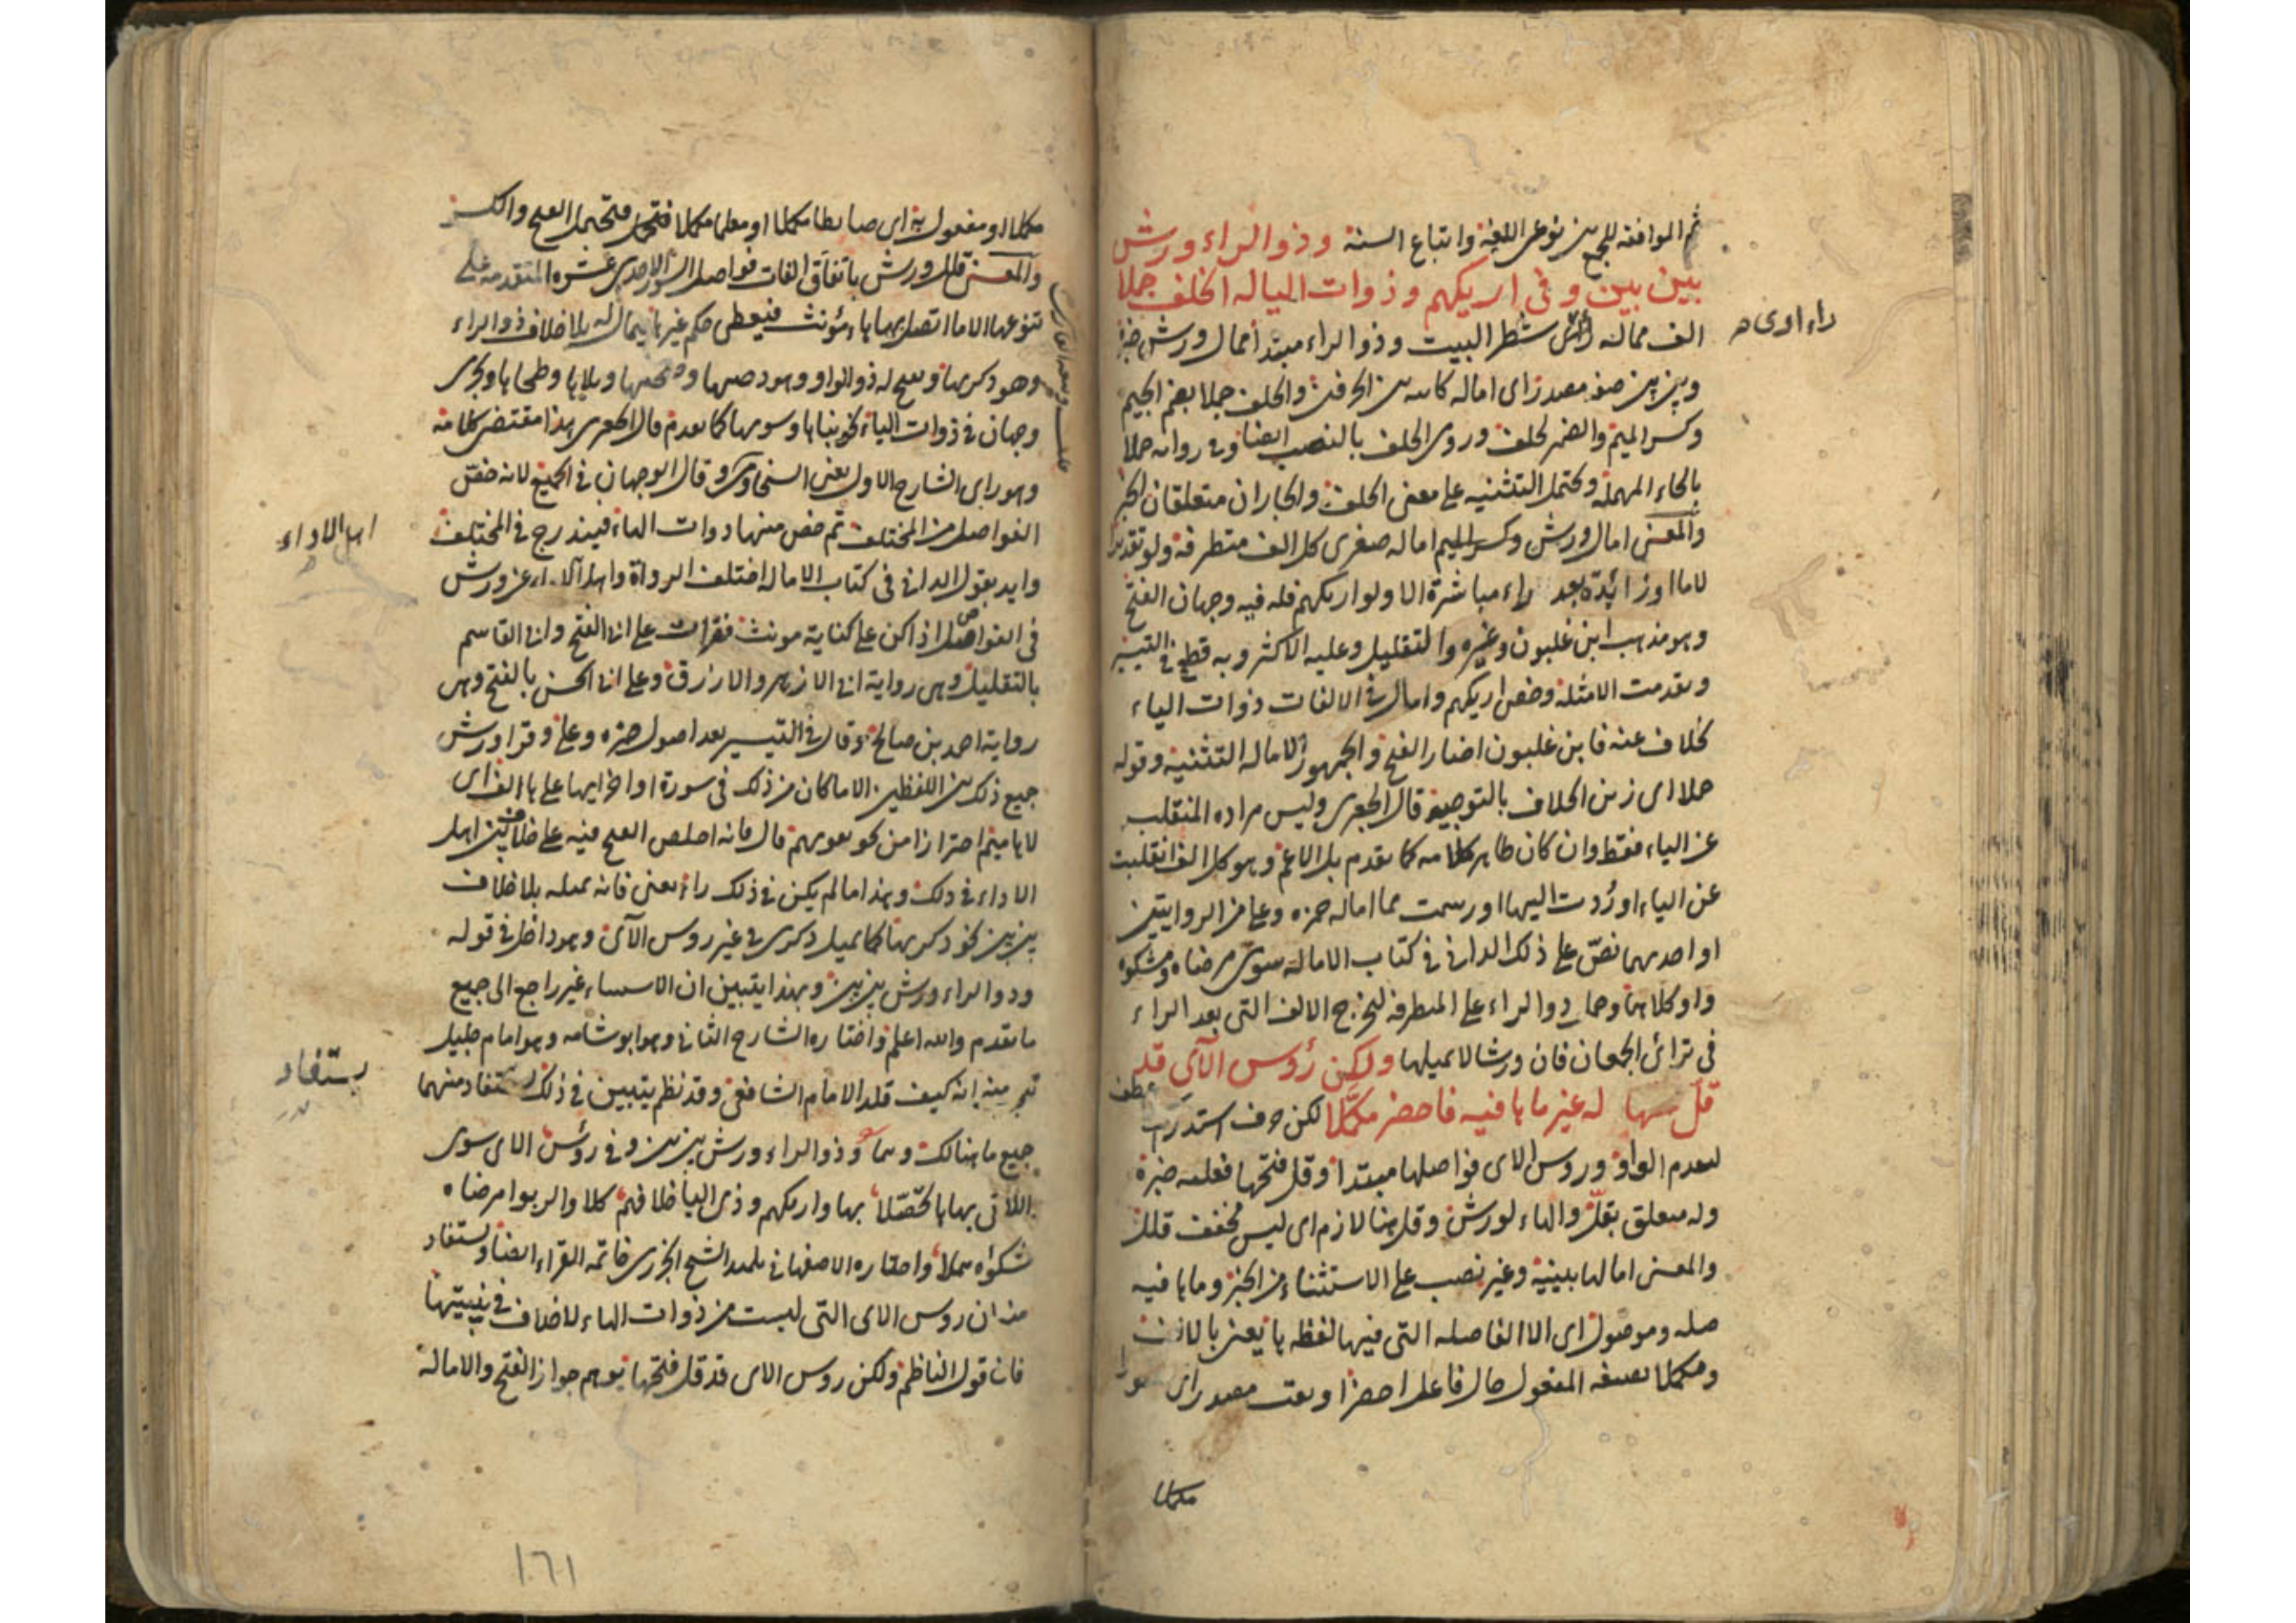 ثم الموافقة للجمع بين نوعي اللغة واتباع السنة وذو الراء ورش
بين بين وفي اريكهم وذوات اليا له الخلف جملا
الف ممالة شطر البيت وذو الراء مبتدأ امال ورش خبره
وبين بين صفة مصدر اي امالة كائنة بين الحرفين والخلف جملا بضم الجيم
وكسر الميم والضمير للخلف وروي الخلف بالنصب ايضا وفي رواية حملا
بالحاء المهملة ويحتمل التثنية على معنى الخلف والجاران متعلقان الخبر
والمعنى امال ورش وكسر الميم امالة صغرى كل الف متطرفة ولو تقديرا
لاما او زائدة بعد راء مباشرة الا ولو اريكهم فله فيه وجهان الفتح
وهو مذهب ابن غلبون وغيره والتقليل وعليه الاكثر وبه قطع في التيسير
وتقدمت الامثلة وخص اريكهم وامال في الالفات ذوات الياء
بخلاف عنه فابن غلبون اختار الفتح والجمهور الامالة التثنية وقوله
حملا اي زين الخلاف بالتوجيه قال الجعبري وليس مراده المنقلب
عن الياء فقط وان كان ظاهر كلامه كما تقدم بل الاعم وهو كل الف انقلبت
عن الياء او ردت اليها او رسمت مما اماله حمزه وعلي من الروايتين
او احديهما نص على ذلك الداني في كتاب الامالة سوى مرضاه ومشكوه
واو كلاهما وحمل ذو الراء على المتطرفة ليخرج الالف التي بعد الراء
في ترائ الجمعان فان ورشا لا يميلها ولكن رؤس الآي قد
قل له غير ما ها فيه فاحضر مكملا لكن حرف استدراك عطف
لعدم الواو ورؤس الآي فواصلها مبتدا وقل فتحها فعليه خبره
وله متعلق بقل والهاء لورش وقل هنا لازم اي ليس مخفف قلل
والمعنى امالها بينية وغير نصب على الاستثناء من الخبر وما ها فيه
صلة وموصول اي الا الفاصلة التي فيها لفظة ها يعني بالاذن
ومكملا بصيغة المفعول حال فاعل احضر او نعت مصدر اي
مكملا
راء اوى
مكملا او مفعول به اي ضابطا مكملا او معلما مكملا فتحها يحتمل الفتح والكسر
والمعنى قلل ورش باتفاق الفات فواصل السور الاحدى عشرة المتقدمة على
تنوعها الا ما اتصل بها هاء مؤنث فيعطى حكم غيرها يمال له بلا خلاف ذو الراء
وهو ذكريها ويفتح له ذو الواو وهو دحيها وضحيها وتليها وطحيها ويجري
وجهان في ذوات الياء نحو بنيها وسويها كما تقدم قال الجعبري هذا مقتضى كلامه
وهو راي الشارح الاول يعني السخاوي وقال الوجهان في الجميع لانه خص
الفواصل من المختلف ثم خص منها ذوات الهاء فيندرج في المختلف
وايد بقول الداني في كتاب الامالة اختلف الرواة واهل الاداء عن ورش
في الفواصل اذا كن على كناية مونث فقرات على ابي الفتح وابي القاسم
بالتقليل وهي رواية ابي الازهر والازرق وعلى ابي الحسن بالفتح وهي
رواية احمد بن صالح وقال في التيسير بعد اصول حمزه وعلي وقرا ورش
جميع ذلك بين اللفظين الا ما كان من ذلك في سورة اواخر ايها على ها الف اي
لا هاء ميم احترازا من نحو تقويهم قال فانه اخلص الفتح فيه على خلاف بين اهل
الاداء في ذلك وهذا ما لم يكن في ذلك راء يعني فانه يميله بلا خلاف
بين بين نحو ذكريها كما يميل ذكرى في غير روس الآي وهو داخل في قوله
وذو الراء ورش بين بين وبهذا يتبين ان الاستثناء غير راجع الى جميع
ما تقدم والله اعلم واختاره الشارح الثاني وهو ابو شامه وهو امام جليل
منه انه كيف قلد الامام الشافعي وقد نظم بيتين في ذلك يستفاد منهما
جميع ما هنالك وهما وذو الراء ورش بين بين وفي رؤس الاي سوى
اللاتي بها ها تحصلا بها واريكهم وذي اليا خلافهم كلا والربوا مرضاه
مشكوة واختاره الاصفهاني تلميذ الشيخ الجزري خاتمة القراء ايضا ويستفاد
منه ان روس الاي التي ليست من ذوات الهاء لا خلاف في بينيتها
فان قول الناظم ولكن روس الاي قد قل فتحها يوهم جواز الفتح والامالة
اهل الاداء
يستفاد
١٦١